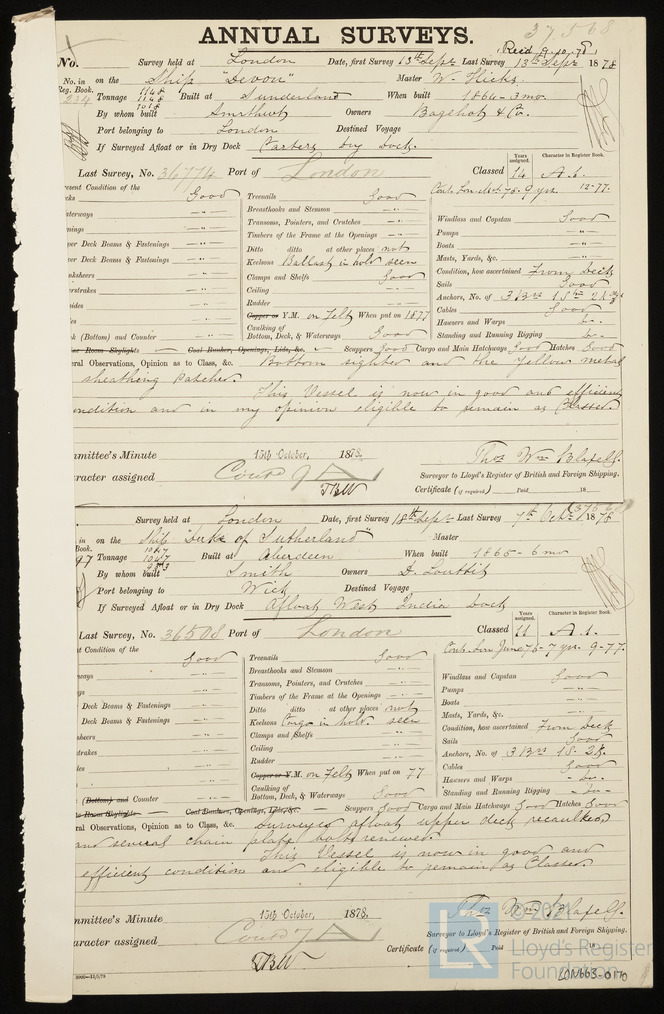 37568
ANNUAL SURVEYS.
Recd 9.10.78
No. Survey held at London Date, first Survey 13th Sept Last Survey 13th Sept 1878
No. in on the Ship "Devon" Master W. Hicks
Reg. Book.
234 Tonnage 1148 1148 Built at Sunderland When built 1864-3mo.
By whom built Owners Bagehot & Co.
Port belonging to London Destined Voyage
If Surveyed Afloat or in Dry Dock Carters Dry Dock.
Last Survey, No. 36774 Port of London Years assigned. Character in Register Book.
Classed 14 A.1.
Present Condition of the Cont. Lon 75-9 yrs 12-77.
Good Treenails Good
Breasthooks and Stemson Windlass and Capstan Good
Transoms, Pointers, and Crutches Pumps
Deck Beams & Fastenings Timbers of the Frame at the Openings Boats
Ditto ditto at other places not Masts, Yards, &c.
Deck Beams & Fastenings Keelsons Ballast in hold seen Condition, how ascertained From Deck
Clamps and Shelfs Good Sails Good
Ceiling Anchors, No. of 3 Brs 1 S. 2 K.
Rudder Cables Good
Copper or Y.M. on Felt When put on 1877 Hawsers and Warps
(Bottom) and Counter Caulking of Bottom, Deck, & Waterways Good Standing and Running Rigging
Room Skylights Coal Bunker, Openings, Lids, &c. Scuppers Good Cargo and Main Hatchways Good Hatches Good
General Observations, Opinion as to Class, &c. Bottom sighted and the yellow metal
sheathing patched.
This Vessel is now in good and efficient
condition and in my opinion eligible to remain as Classed.
Committee's Minute 15th October, 1878. Thos Wm Blakely.
Character assigned Contd 9 A Surveyor to Lloyd's Register of British and Foreign Shipping.
TBW Certificate (if required) Paid 18
Survey held at London Date, first Survey 18th Sept Last Survey 7th Octr 1878
in on the Ship "Duke of Sutherland" Master
Book.
97 Tonnage 1047 1047 Built at Aberdeen When built 1865-6mo
By whom built Smith Owners D. Louttit
Port belonging to Wick Destined Voyage
If Surveyed Afloat or in Dry Dock Afloat West India Dock
Last Survey, No. 36508 Port of London Years assigned. Character in Register Book.
Classed 11 A.1.
Condition of the Cont. Lon June 76-7 yrs. 9-77.
Good Treenails Good
Breasthooks and Stemson Windlass and Capstan Good
Transoms, Pointers, and Crutches Pumps
Deck Beams & Fastenings Timbers of the Frame at the Openings Boats
Ditto ditto at other places not Masts, Yards, &c.
Deck Beams & Fastenings Keelsons Cargo in hold. seen Condition, how ascertained From Deck
Clamps and Shelfs Sails Good
Ceiling Anchors, No. of 3 Brs 1 S. 2 K.
Rudder Cables Good
Copper or Y.M. on Felt When put on 77 Hawsers and Warps
(Bottom) and Counter Caulking of Bottom, Deck, & Waterways Good Standing and Running Rigging
Room Skylights Coal Bunker, Openings, Lids, &c. Scuppers Good Cargo and Main Hatchways Good Hatches Good
General Observations, Opinion as to Class, &c. Surveyed afloat upper deck recaulked,
and several chain plate bolts renewed.
This Vessel is now in good and
efficient condition and eligible to remain as Classed.
Committee's Minute 15th October, 1878. Thos Wm Blakely.
Character assigned Contd 7 A Surveyor to Lloyd's Register of British and Foreign Shipping.
TBW Certificate (if required) Paid 18
LR © 2021 Lloyd's Register Foundation
LON663-0170